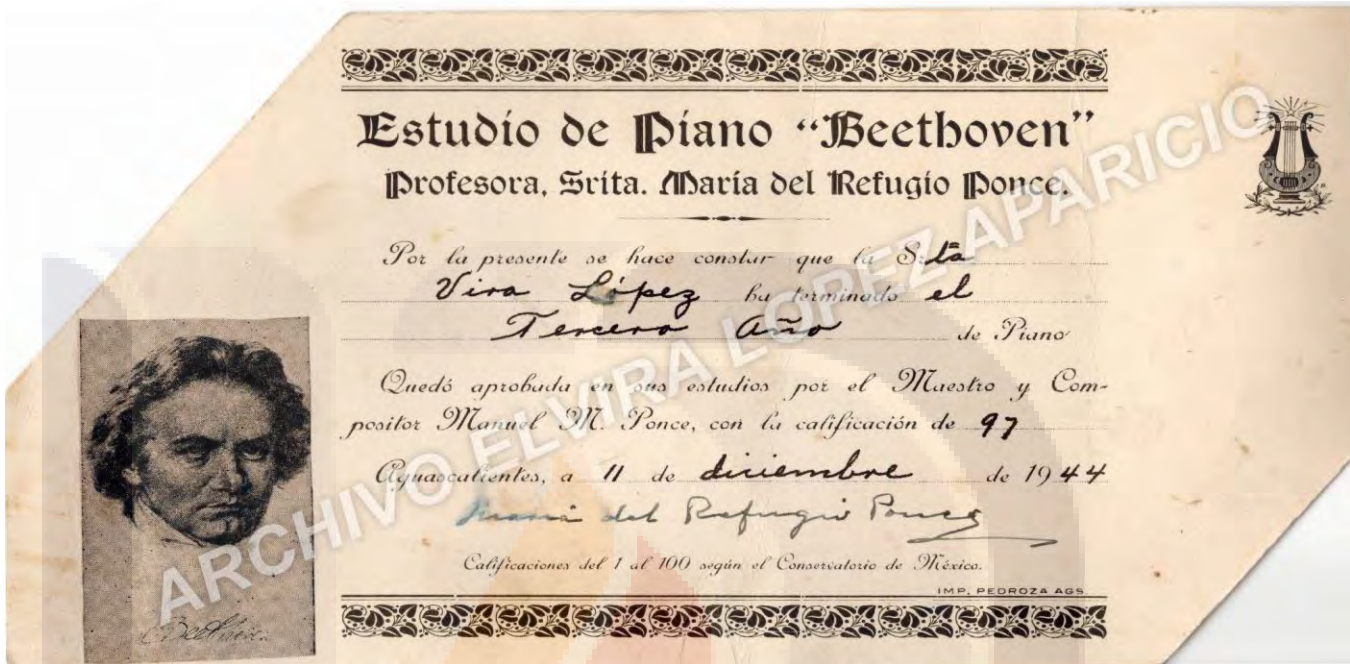 Estudio de Piano “Beethoven”
Profesora, Srita. María del Refugio Ponce.
Por la presente se hace constar que la Srta
Vira López ha terminado el
Tercero Año de Piano
Quedó aprobada en sus estudios por el Maestro y Com-
positor Manuel M. Ponce, con la calificación de 97
Aguascalientes, a 11 de diciembre de 1944
María del Refugio Ponce
Calificaciones del 1 al 100 según el Conservatorio de México.
IMP. PEDROZA AGS.
Beethoven
ARCHIVO ELVIRA LOPEZ APARICIO